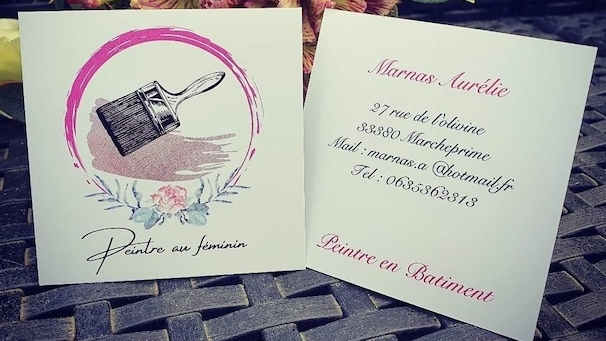 Peintre au féminin
Marnas Aurélie
27 rue de l'olivine
33380 Marcheprime
Mail : marnas.a @hotmail.fr
Tel : 0635362313
Peintre en Batiment